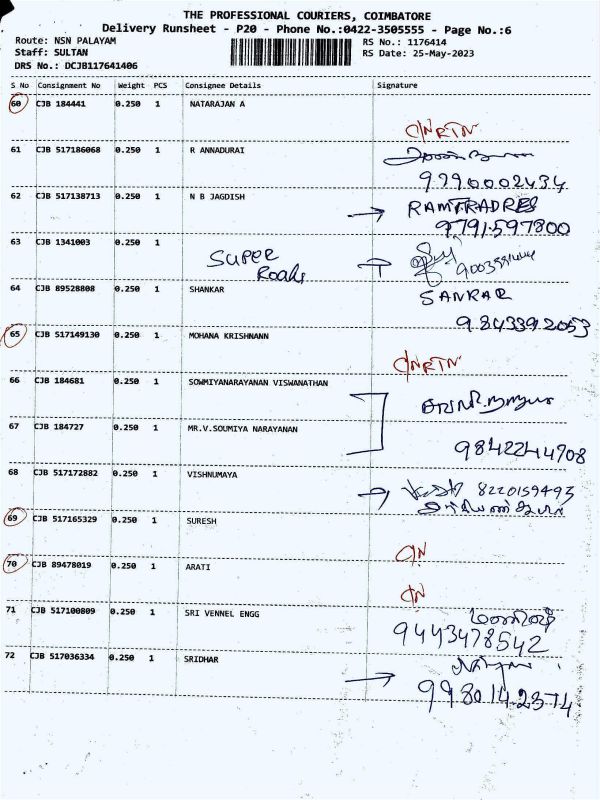 THE PROFESSIONAL COURIERS, COIMBATORE
Delivery Runsheet - P20 - Phone No.:0422-3505555 - Page No.:6
Route: NSN PALAYAM RS No.: 1176414
Staff: SULTAN RS Date: 25-May-2023
DRS No.: DCJB117641406
S No Consignment No Weight PCS Consignee Details Signature
60 CJB 184441 0.250 1 NATARAJAN A
C/N RTN
61 CJB 517186068 0.250 1 R ANNADURAI
9790002434
62 CJB 517138713 0.250 1 N B JAGDISH RAMTRADRES
9791597800
63 CJB 1341003 0.250 1
SUPER
Roads
64 CJB 89528808 0.250 1 SHANKAR SANKAR
9843392053
65 CJB 517149130 0.250 1 MOHANA KRISHNANN
C/N RTN
66 CJB 184681 0.250 1 SOWMIYANARAYANAN VISWANATHAN
67 CJB 184727 0.250 1 MR.V.SOUMIYA NARAYANAN
9842244708
68 CJB 517172882 0.250 1 VISHNUMAYA
8220159493
69 CJB 517165329 0.250 1 SURESH
C/N
70 CJB 89478019 0.250 1 ARATI
C/N
71 CJB 517100809 0.250 1 SRI VENNEL ENGG
9443478542
72 CJB 517036334 0.250 1 SRIDHAR
9980142374